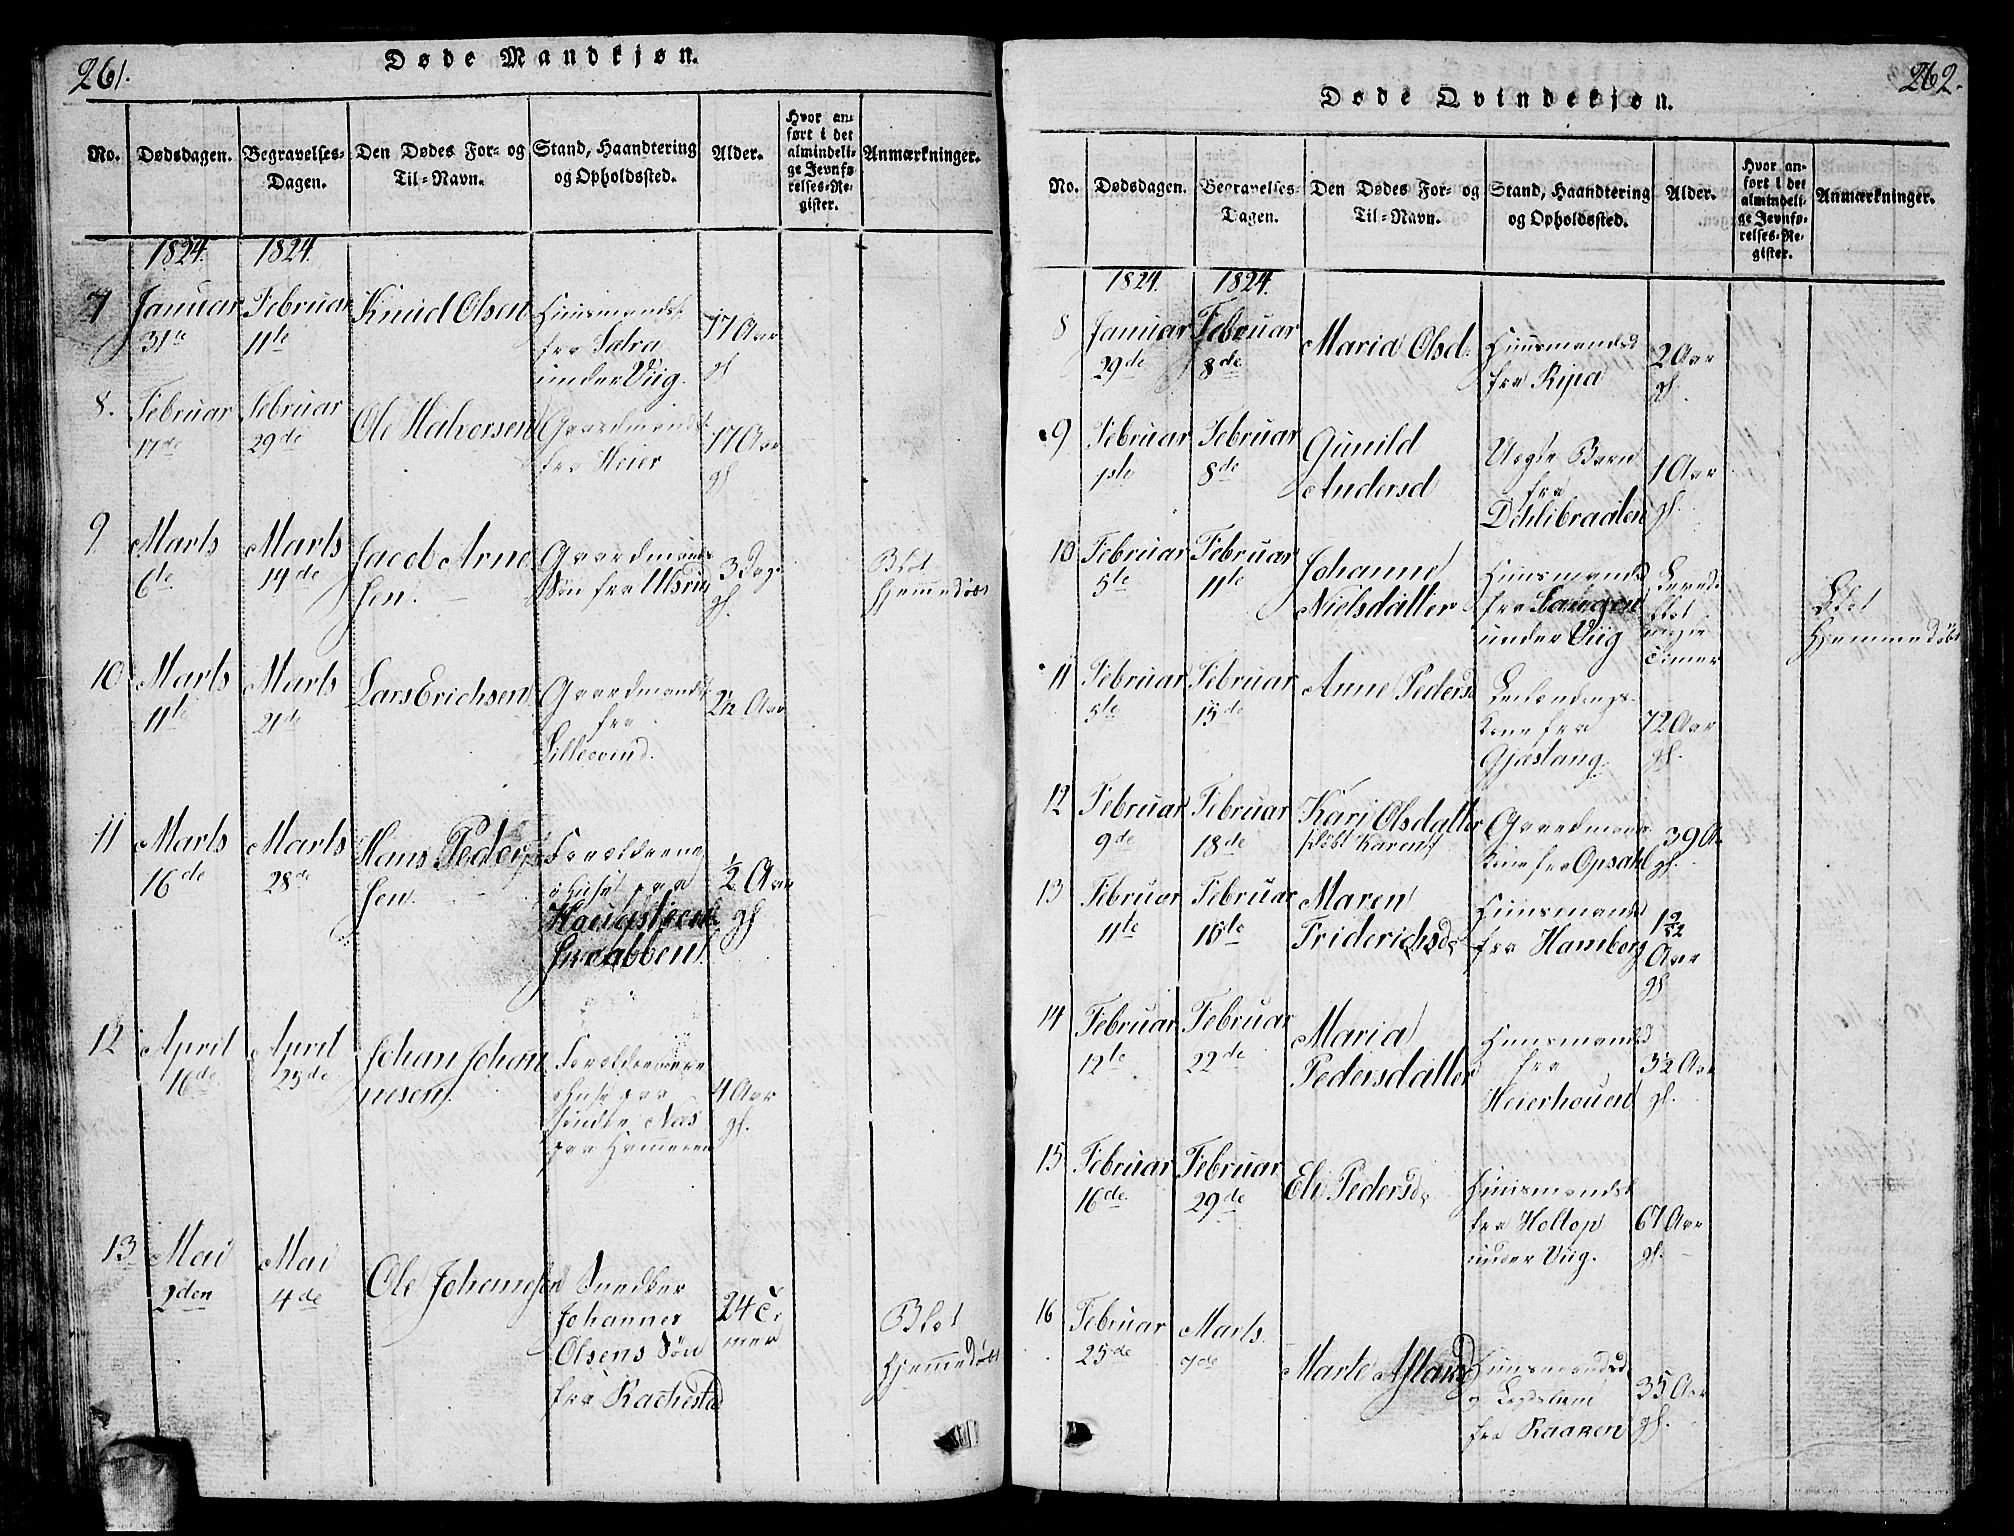 261.
Døde Mandkjøn.
No. Dødsdagen. Begravelses-Dagen. Den Dødes For- og Til-Navn. Stand, Haandtering og Opholdssted. Alder. Hvor anført i det almindelige Jevnførelses-Register. Anmærkninger.
1824. 1824.
7 Januar Februar Knud Olsen Huusmands
31te 11te fra Sætra 17 Aar
under Viig. gl
8. Februar Februar Ole Halvorsen Gaardmands
17de 29de fra Heier 17 Aar
gl
9 Marts Marts Jacob Arne Gaardmands 3 Dage Blot
6te 14de sen. Søn fra Ulsrud gl. hjemmedøbt
10 Marts Marts Lars Erichsen Gaardmands 2½ Aar
11te 21de fra
Lillesvind.
11 Marts Marts Hans Peder Forældrene
16de 28de sen. ½ Aar
gl
12 April April Johan Johan
16de 25de nesen 4 Aar
gl.
paa Hammeren
13 Mai Mai Ole Johannesen Snedker 24 Ti
2den 4de Johannes mer Blot
Olsens Søn hjemmedøbt
fra Rachestad
262.
Døde Qvindekjøn.
No. Dødsdagen. Begravelses-Dagen. Den Dødes For- og Til-Navn. Stand, Haandtering og Opholdssted. Alder. Hvor anført i det almindelige Jevnførelses-Register. Anmærkninger.
1824. 1824.
8 Januar Februar Maria Olsd. Huusmandsd 2 Aar
29de 8de fra Ripa gl.
9 Februar Februar Gunild Uægte Barn 1 Aar
1ste 8de Andersd fra gl.
10 Februar Februar Johanne Huusmandsd
5te 11te Nielsdatter fra Haugen Blot
under Viig Timer hjemmedøbt
11 Februar Februar Anne Pedersd
5te 15de Kone fra 72 Aar
Gjæstang. gl.
12 Februar Februar Kari Olsdatter Gaardmands 39 A
9de 18de (døbt Karen) Kone fra Opsahl gl.
13 Februar Februar Maren Huusmandsd
11te 15de Friderichsd. fra Hamberg Aar
gl
14 Februar Februar Maria Huusmandsd
12te 22de Pedersdatter fra 3½ Aar
Heierhouen gl.
15 Februar Februar Eli Pedersd. Huusmandsk
16de 29de fra Holtop 67 Aar
under Viig. gl.
16 Februar Marts. Marte Huusmandsd
25de 7de 35 Aar
fra Raaren gl.